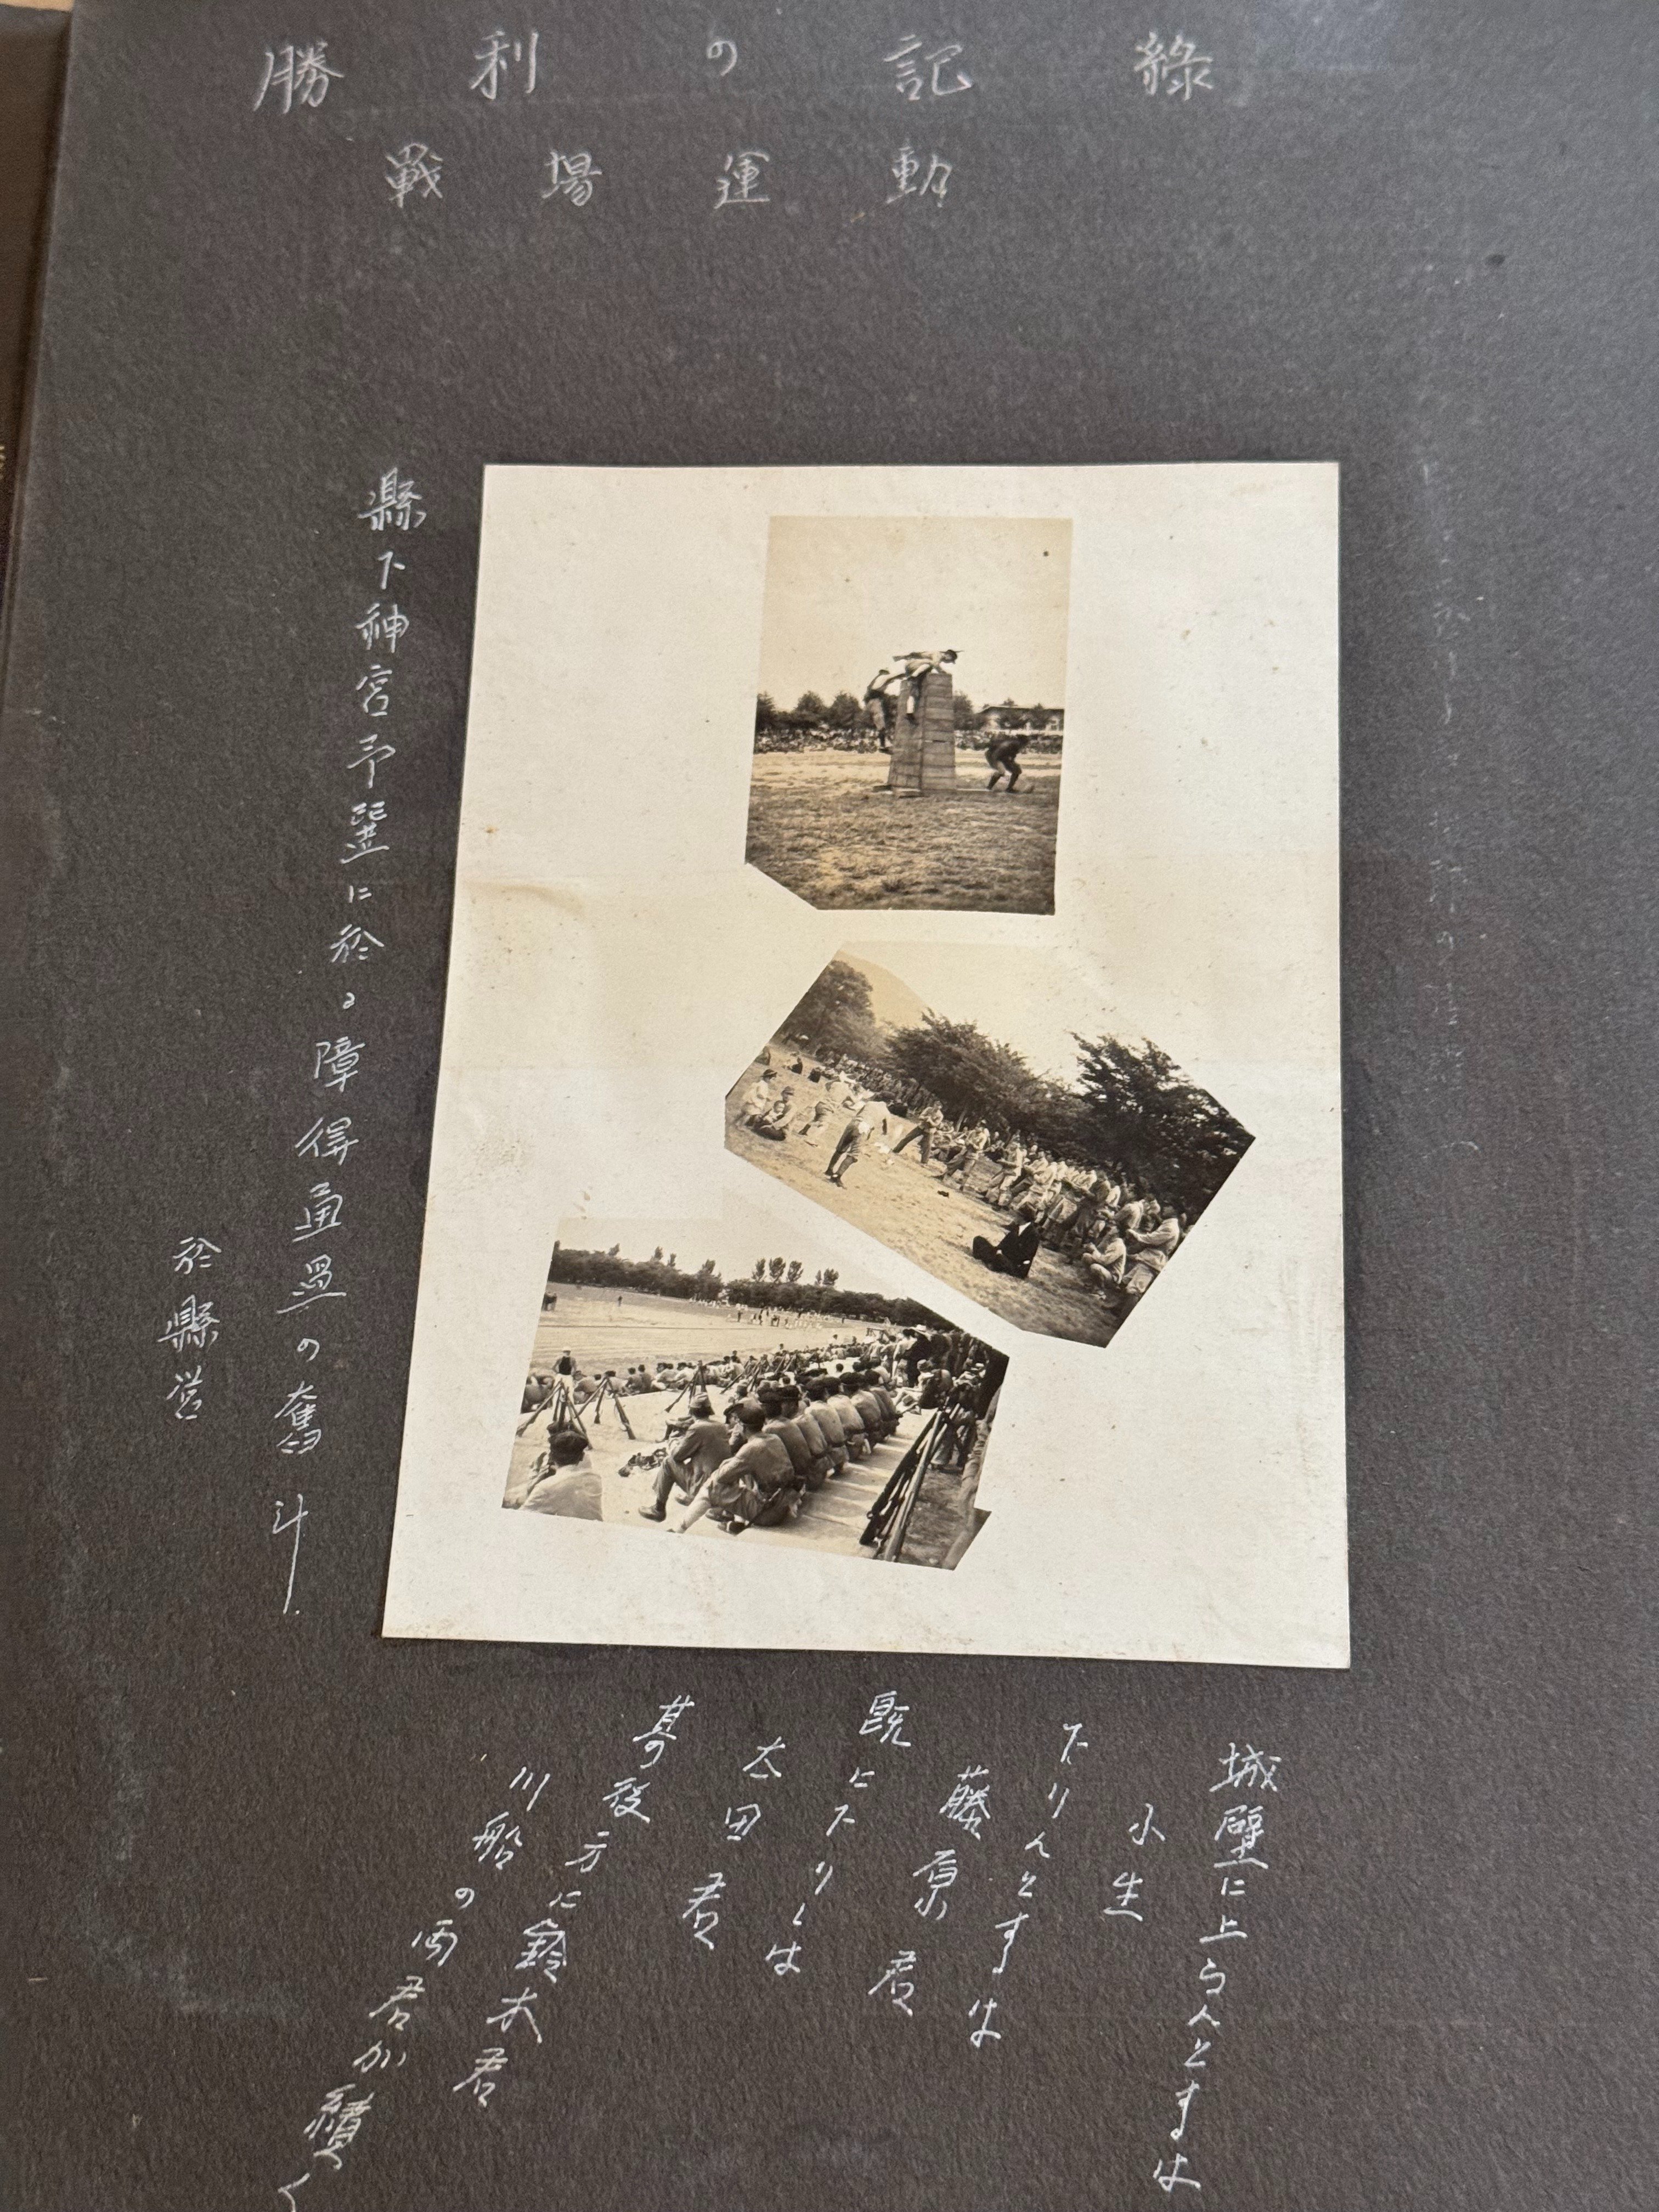 勝利の記錄
戰場運動
縣下神宮予選に於る障碍通過の奮斗
於縣営
城壁に上らんとするは
小生
下りんとするは
藤原君
既に下りしは
太田君
其の後方に鈴木君
川船の両君が續く